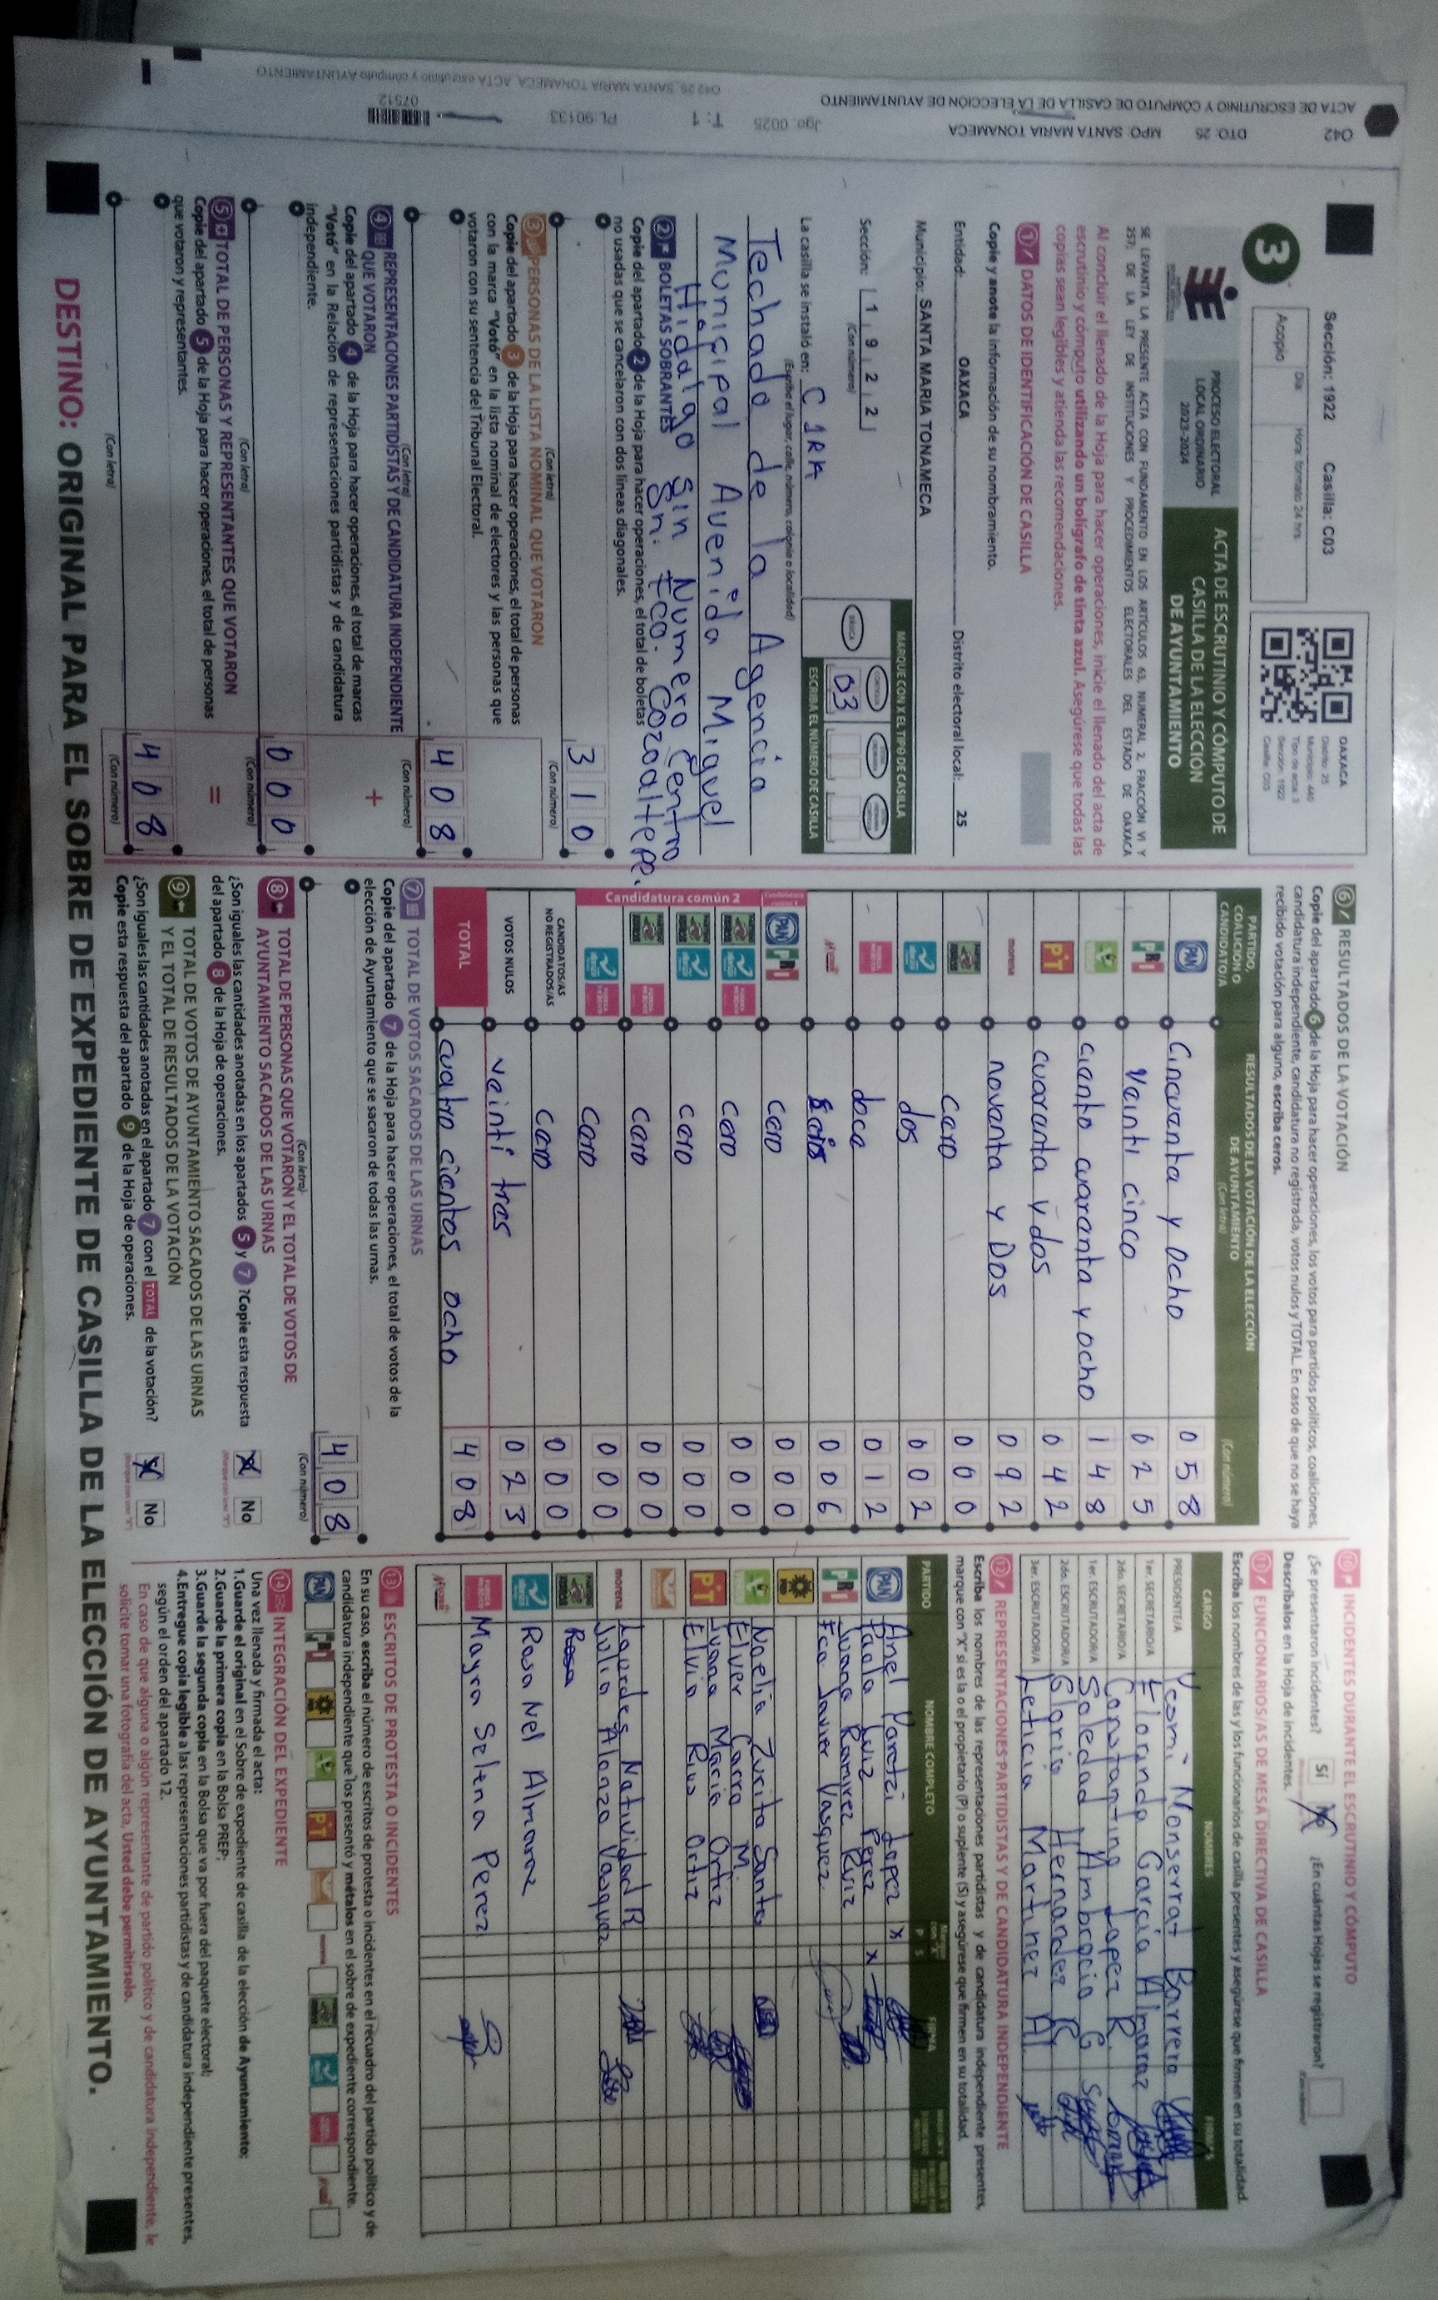 042 DTO: 25 MPO: SANTA MARIA TONAMECA Jgo: 0025 T: 1 PL: 90133 07512
ACTA DE ESCRUTINIO Y CÓMPUTO DE CASILLA DE LA ELECCIÓN DE AYUNTAMIENTO 042 25, SANTA MARIA TONAMECA, ACTA escrutinio y cómputo AYUNTAMIENTO
Sección: 1922 Casilla: C03
Día Hora: formato 24 hrs
Acopio
3
OAXACA
Distrito: 25
Municipio: 440
Tipo de acta: 3
Sección: 1922
Casilla: C03
PROCESO ELECTORAL
LOCAL ORDINARIO
2023-2024
ACTA DE ESCRUTINIO Y CÓMPUTO DE
CASILLA DE LA ELECCIÓN
DE AYUNTAMIENTO
SE LEVANTA LA PRESENTE ACTA CON FUNDAMENTO EN LOS ARTÍCULOS 63, NUMERAL 2, FRACCIÓN VI Y
257; DE LA LEY DE INSTITUCIONES Y PROCEDIMIENTOS ELECTORALES DEL ESTADO DE OAXACA
Al concluir el llenado de la Hoja para hacer operaciones, inicie el llenado del acta de
escrutinio y cómputo utilizando un bolígrafo de tinta azul. Asegúrese que todas las
copias sean legibles y atienda las recomendaciones.
1 DATOS DE IDENTIFICACIÓN DE CASILLA
Copie y anote la información de su nombramiento.
Entidad: OAXACA Distrito electoral local: 25
Municipio: SANTA MARIA TONAMECA
Sección: 1 9 2 2
(Con número)
MARQUE CON X EL TIPO DE CASILLA
03
ESCRIBA EL NÚMERO DE CASILLA
La casilla se instaló en: C 1RA
(Escriba el lugar, calle, número, colonia o localidad)
Techado de la Agencia
Municipal Avenida Miguel
Hidalgo sin Numero Centro
Sn. Fco. Cozoaltepec.
2 BOLETAS SOBRANTES
Copie del apartado 2 de la Hoja para hacer operaciones, el total de boletas
no usadas que se cancelaron con dos líneas diagonales.
3 1 0
(Con letra) (Con número)
3 PERSONAS DE LA LISTA NOMINAL QUE VOTARON
Copie del apartado 3 de la Hoja para hacer operaciones, el total de personas
con la marca "Votó" en la lista nominal de electores y las personas que
votaron con su sentencia del Tribunal Electoral.
4 0 8
(Con letra) (Con número)
4 REPRESENTACIONES PARTIDISTAS Y DE CANDIDATURA INDEPENDIENTE
QUE VOTARON
Copie del apartado 4 de la Hoja para hacer operaciones, el total de marcas
"Votó" en la Relación de representaciones partidistas y de candidatura
independiente.
+
0 0 0
(Con letra) (Con número)
5 TOTAL DE PERSONAS Y REPRESENTANTES QUE VOTARON
Copie del apartado 5 de la Hoja para hacer operaciones, el total de personas
que votaron y representantes.
=
4 0 8
(Con letra) (Con número)
6 RESULTADOS DE LA VOTACIÓN
Copie del apartado 6 de la Hoja para hacer operaciones, los votos para partidos políticos, coaliciones,
candidatura independiente, candidatura no registrada, votos nulos y TOTAL. En caso de que no se haya
recibido votación para alguno, escriba ceros.
PARTIDO, COALICIÓN O CANDIDATO/A
RESULTADOS DE LA VOTACIÓN DE LA ELECCIÓN DE AYUNTAMIENTO
(Con letra) (Con número)
PAN Cincuenta y Ocho 0 5 8
PRI Veinti cinco 0 2 5
ciento cuarenta y ocho 1 4 8
PT cuarenta y dos 0 4 2
morena noventa y Dos 0 9 2
cero 0 0 0
dos 0 0 2
doce 0 1 2
seis 0 0 6
PAN PRI cero 0 0 0
Candidatura común 2
cero 0 0 0
cero 0 0 0
cero 0 0 0
cero 0 0 0
CANDIDATOS/AS NO REGISTRADOS/AS cero 0 0 0
VOTOS NULOS veinti tres 0 2 3
TOTAL cuatro cientos ocho 4 0 8
7 TOTAL DE VOTOS SACADOS DE LAS URNAS
Copie del apartado 7 de la Hoja para hacer operaciones, el total de votos de la
elección de Ayuntamiento que se sacaron de todas las urnas.
4 0 8
(Con letra) (Con número)
8 TOTAL DE PERSONAS QUE VOTARON Y EL TOTAL DE VOTOS DE
AYUNTAMIENTO SACADOS DE LAS URNAS
¿Son iguales las cantidades anotadas en los apartados 5 y 7 ? Copie esta respuesta
del apartado 8 de la Hoja de operaciones.
X No
9 TOTAL DE VOTOS DE AYUNTAMIENTO SACADOS DE LAS URNAS
Y EL TOTAL DE RESULTADOS DE LA VOTACIÓN
¿Son iguales las cantidades anotadas en el apartado 7 con el TOTAL de la votación?
Copie esta respuesta del apartado 9 de la Hoja de operaciones.
X No
10 INCIDENTES DURANTE EL ESCRUTINIO Y CÓMPUTO
¿Se presentaron incidentes? Sí No ¿En cuántas Hojas se registraron?
Descríbalos en la Hoja de incidentes.
11 FUNCIONARIOS/AS DE MESA DIRECTIVA DE CASILLA
Escriba los nombres de las y los funcionarios de casilla presentes y asegúrese que firmen en su totalidad.
CARGO NOMBRES FIRMAS
PRESIDENTE/A Yesmi Monserrat Barrera
1er. SECRETARIO/A Florinda García Almaraz
2do. SECRETARIO/A Constantino Lopez R.
1er. ESCRUTADOR/A Soledad Ambrocio G
2do. ESCRUTADOR/A Gloria Hernandez R
3er. ESCRUTADOR/A Leticia Martinez
12 REPRESENTACIONES PARTIDISTAS Y DE CANDIDATURA INDEPENDIENTE
Escriba los nombres de las representaciones partidistas y de candidatura independiente presentes,
marque con "X" si es la o el propietario (P) o suplente (S) y asegúrese que firmen en su totalidad.
PARTIDO NOMBRE COMPLETO P S FIRMA
PAN Anel Lopez X
Paola Ruiz Perez X
PRI Juana Ramirez Ruiz
Fco Javier Vasquez
Noelia Zurita Santo
Elver Carro M.
PT Juana Maria Ortiz
Elvia Rios Ortiz
morena Lourdes Natividad R
Julia Alonzo Vasquez
Rosa
Rosa Nel Almaraz
Mayra Selena Perez
13 ESCRITOS DE PROTESTA O INCIDENTES
En su caso, escriba el número de escritos de protesta o incidentes en el recuadro del partido político y de
candidatura independiente que los presentó y métalos en el sobre de expediente correspondiente.
14 INTEGRACIÓN DEL EXPEDIENTE
Una vez llenada y firmada el acta:
1.Guarde el original en el Sobre de expediente de casilla de la elección de Ayuntamiento;
2.Guarde la primera copia en la Bolsa PREP;
3.Guarde la segunda copia en la Bolsa que va por fuera del paquete electoral;
4.Entregue copia legible a las representaciones partidistas y de candidatura independiente presentes,
según el orden del apartado 12.
En caso de que alguna o algún representante de partido político y de candidatura independiente, le
solicite tomar una fotografía del acta, Usted debe permitírselo.
DESTINO: ORIGINAL PARA EL SOBRE DE EXPEDIENTE DE CASILLA DE LA ELECCIÓN DE AYUNTAMIENTO.